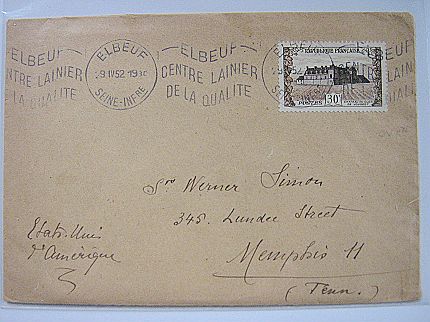 ELBEUF
CENTRE LAINIER
DE LA QUALITE
ELBEUF
SEINE-INFRE
ELBEUF
CENTRE LAINIER
DE LA QUALITE
REPUBLIQUE FRANÇAISE
POSTES
30F
Werner Simon
345. Dundee Street
Memphis 11
(Tenn.)
Etats-Unis
d'Amérique